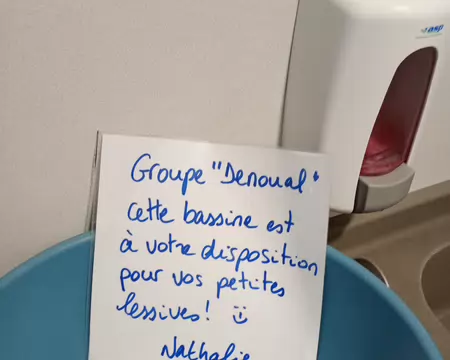 asp
Groupe "Denoual"
cette bassine est
à votre disposition
pour vos petites
lessives! ü
Nathalie